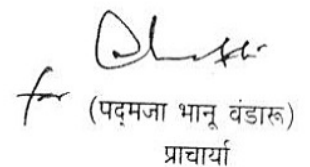 for (पद्‌मजा भानू वंडारू)
प्राचार्या